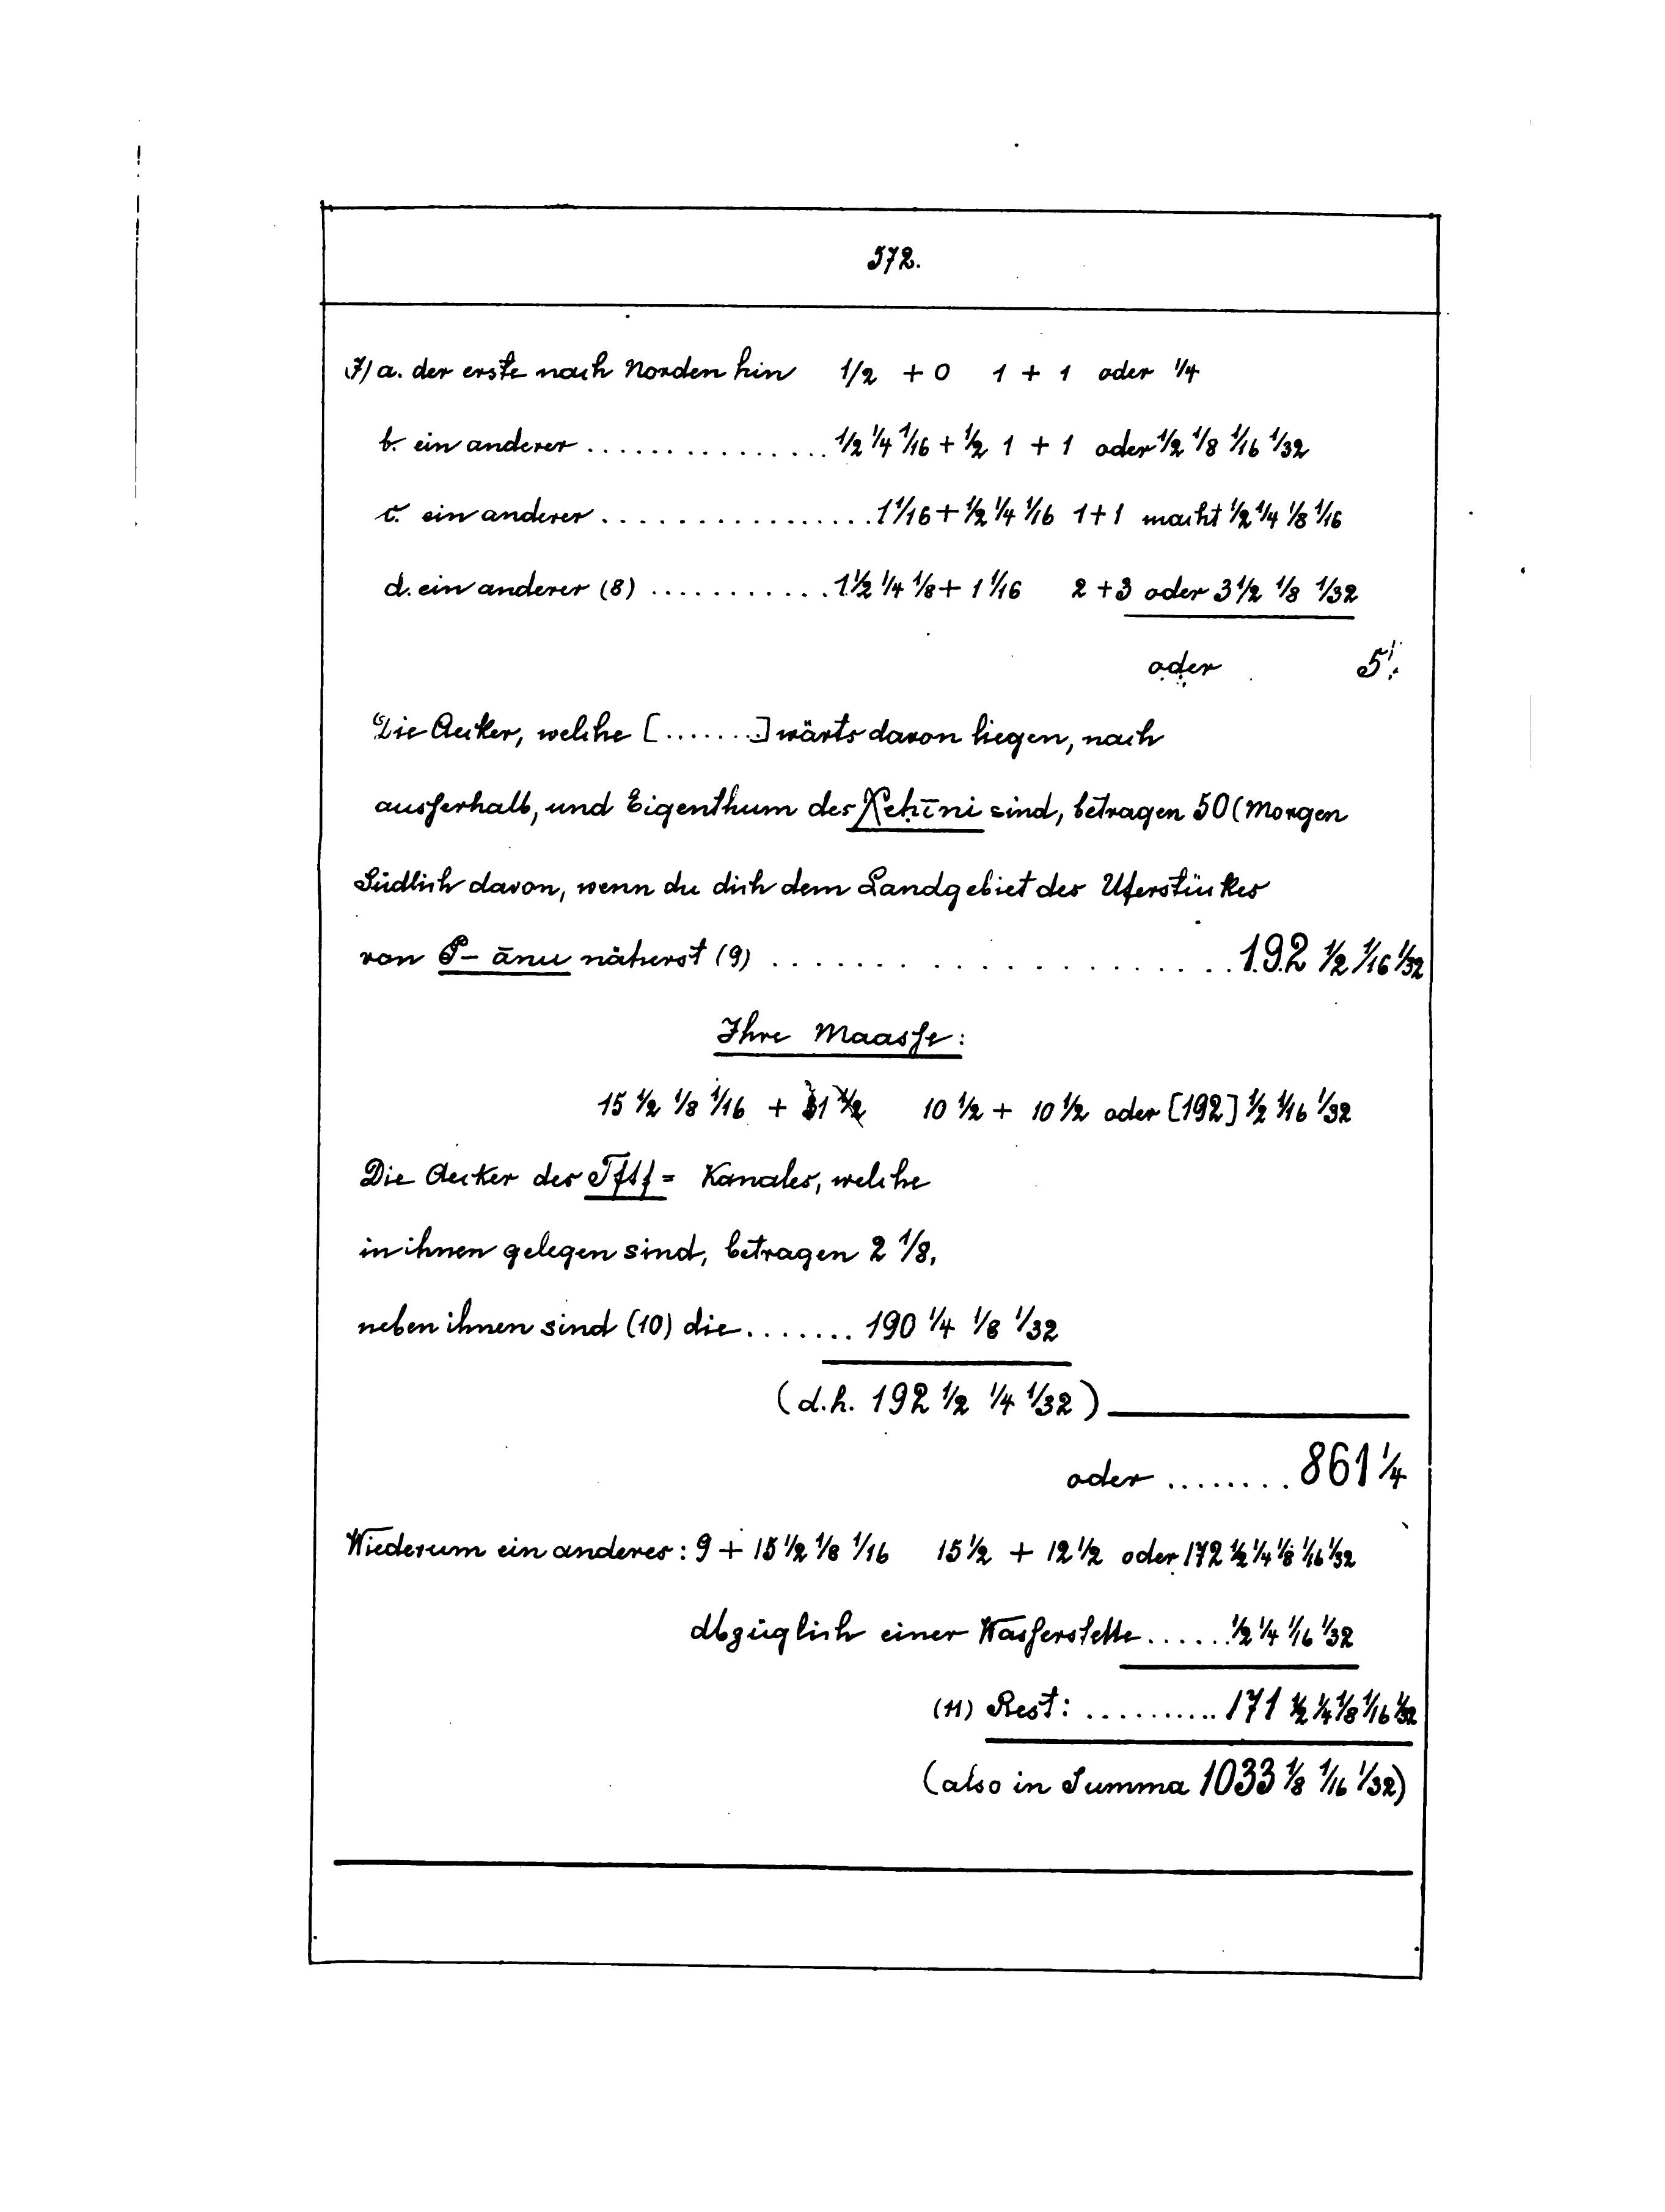 572.
7) a. der erste nach Norden hin 1/2 + 0 1 + 1 oder 1/4
b. ein anderer ............... 1/2 1/4 1/16 + 1/2 1 + 1 oder 1/2 1/8 1/16 1/32
c. ein anderer ................. 1 1/16 + 1/2 1/4 1/16 1+1 macht 1/2 1/4 1/8 1/16
d. ein anderer (8) ............ 1 1/2 1/4 1/8 + 1 1/16 2 + 3 oder 3 1/2 1/8 1/32
oder 5
Die Aecker, welche [.......] wärts davon liegen, nach
ausserhalb, und Eigenthum des Xeḥīni sind, betragen 50 (Morgen
Südlich davon, wenn du dich dem Landgebiet des Uferstückes
von P-ānu näherst (9) .................. 192 1/2 1/16 1/32
Ihre Maasse:
15 1/2 1/8 1/16 + 10 1/2 + 10 1/2 oder [192] 1/2 1/16 1/32
Die Aecker des = Kanales, welche
in ihnen gelegen sind, betragen 2 1/8,
neben ihnen sind (10) die ........ 190 1/4 1/8 1/32
(d.h. 192 1/2 1/4 1/32)
oder ........ 861 1/4
Wiederum ein anderes: 9 + 15 1/2 1/8 1/16 15 1/2 + 12 1/2 oder 172 1/2 1/4 1/8 1/16 1/32
Abzüglich einer Wasserstelle ...... 1/2 1/4 1/16 1/32
(11) Rest: .......... 171 1/2 1/4 1/8 1/16 1/32
(also in Summa 1033 1/8 1/16 1/32)